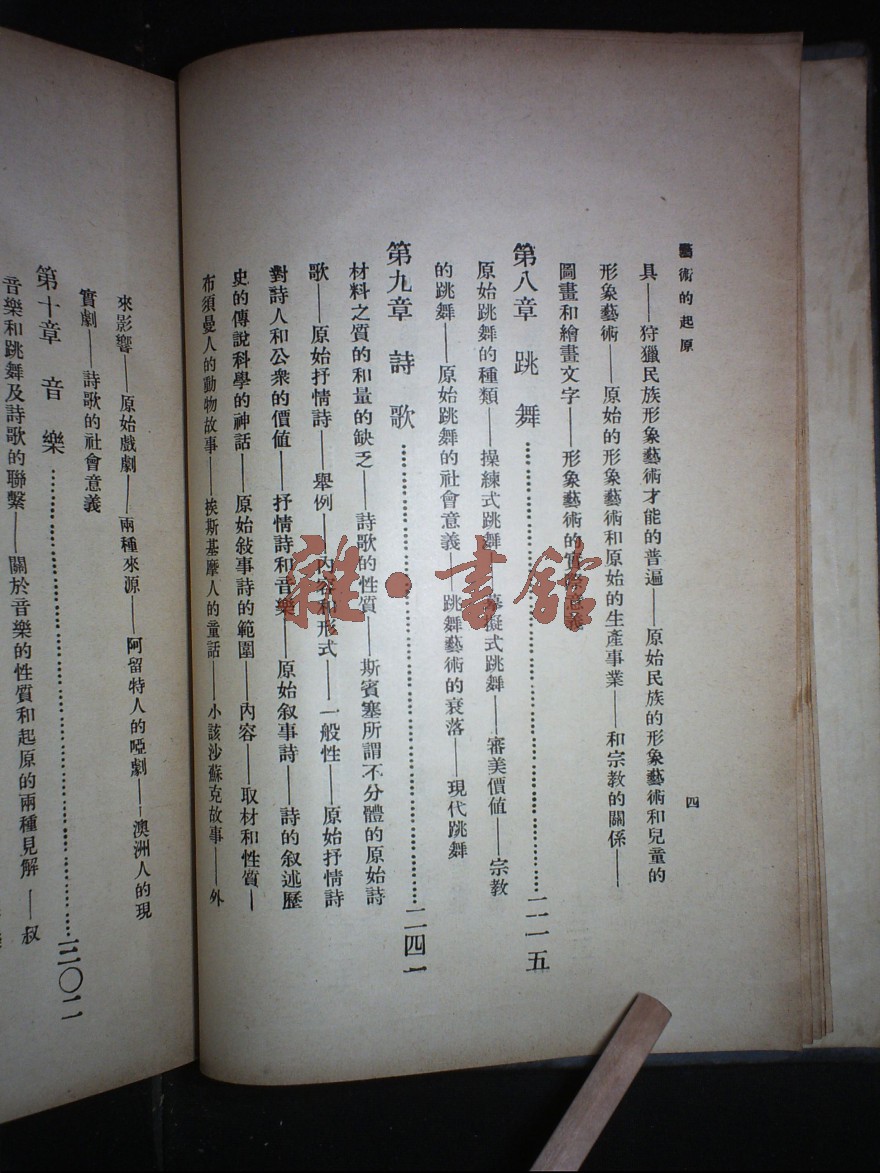 藝術的起原
四
具——狩獵民族形象藝術才能的普遍——原始民族的形象藝術和兒童的
形象藝術——原始的形象藝術和原始的生產事業——和宗教的關係——
圖畫和繪畫文字——形象藝術的實際意義
第八章 跳舞……二一五
原始跳舞的種類——操練式跳舞——摹擬式跳舞——審美價值——宗教
的跳舞——原始跳舞的社會意義——跳舞藝術的衰落——現代跳舞
第九章 詩歌……二四一
材料之質的和量的缺乏——詩歌的性質——斯賓塞所謂不分體的原始詩
歌——原始抒情詩——舉例——內容和形式——一般性——原始抒情詩
對詩人和公衆的價值——抒情詩和音樂——原始叙事詩——詩的叙述歷
史的傳說科學的神話——原始敍事詩的範圍——內容——取材和性質——
布須曼人的動物故事——挨斯基摩人的童話——小該沙蘇克故事——外
來影響——原始戲劇——兩種來源——阿留特人的啞劇——澳洲人的現
實劇——詩歌的社會意義
第十章 音樂……三〇二
音樂和跳舞及詩歌的聯繫——關於音樂的性質和起原的兩種見解——叔
雜·書館